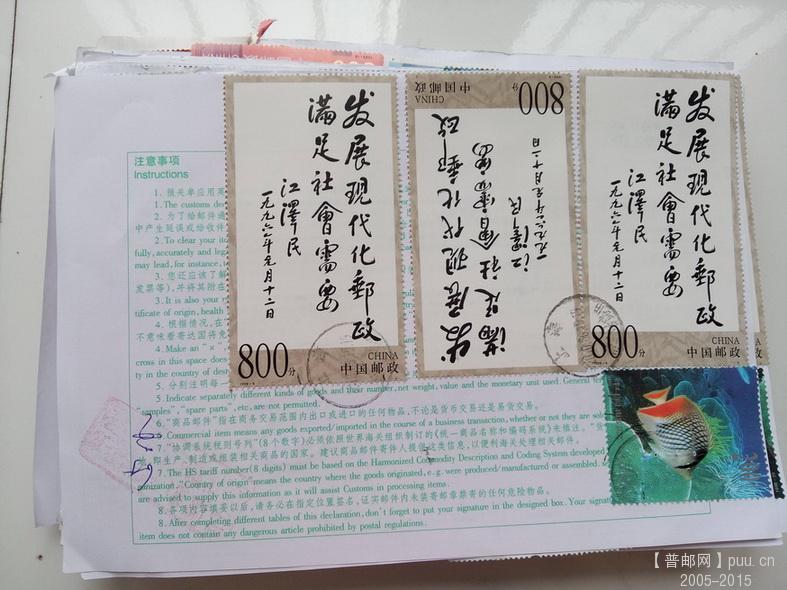 发展现代化郵政
满足社會需要
江澤民
一九九六年元月十二日
800分
CHINA
中国邮政
发展现代化郵政
满足社會需要
江澤民
一九九六年元月十二日
800分
CHINA
中国邮政
发展现代化郵政
满足社會需要
江澤民
一九九六年元月十二日
800分
CHINA
中国邮政
注意事项
Instructions
1. 报关单应用
1. The customs dec
2. 为了给邮件
中产生延误或给收件
2. To clear your ite
fully, accurately and leg
may lead, for instance, t
3. 您还应该了解
发票等)，并将其附在
3. It is also your r
tificate of origin, health
4. 根据情况，在
不意味着寄达国将免
4. Make an "×"
cross in this space does
ty in the country of desti
5. 分别注明每一
5. Indicate separately different kinds of goods and their number, net weight, value and the monetary unit used. General ter
"samples", "spare parts", etc, are not permitted.
6. "商品邮件"指在商务交易范围内出口或进口的任何物品，不论是货币交易还是易货交易。
6. Commercial item means any goods exported/imported in the course of a business transaction, whether or not they are sol
7. "协调系统税则号列"(8个数字)必须依照世界海关组织制订的《统一商品名称和编码系统》来推注。"货
地、野生产、制造或组装相关商品的国家。建议商品邮件寄件人提供这类信息，以便利海关处理相关邮件。
7. The HS tariff number(8 digits) must be based on the Harmonized Commodity Description and Coding System developed
ganization. "Country of origin" means the country where the goods originated, e.g. were produced/manufactured or assembled.
are advised to supply this information as it will assist Customs in processing items.
8. 各项内容填妥以后，请务必在指定位置签名，证实邮件内未装寄邮章禁寄的任何危险物品。
8. After completing different tables of this declaration, don't forget to put your signature in the designed box. Your signat
item does not contain any dangerous article prohibited by postal regulations.
【普邮网】puu.cn
2005-2015